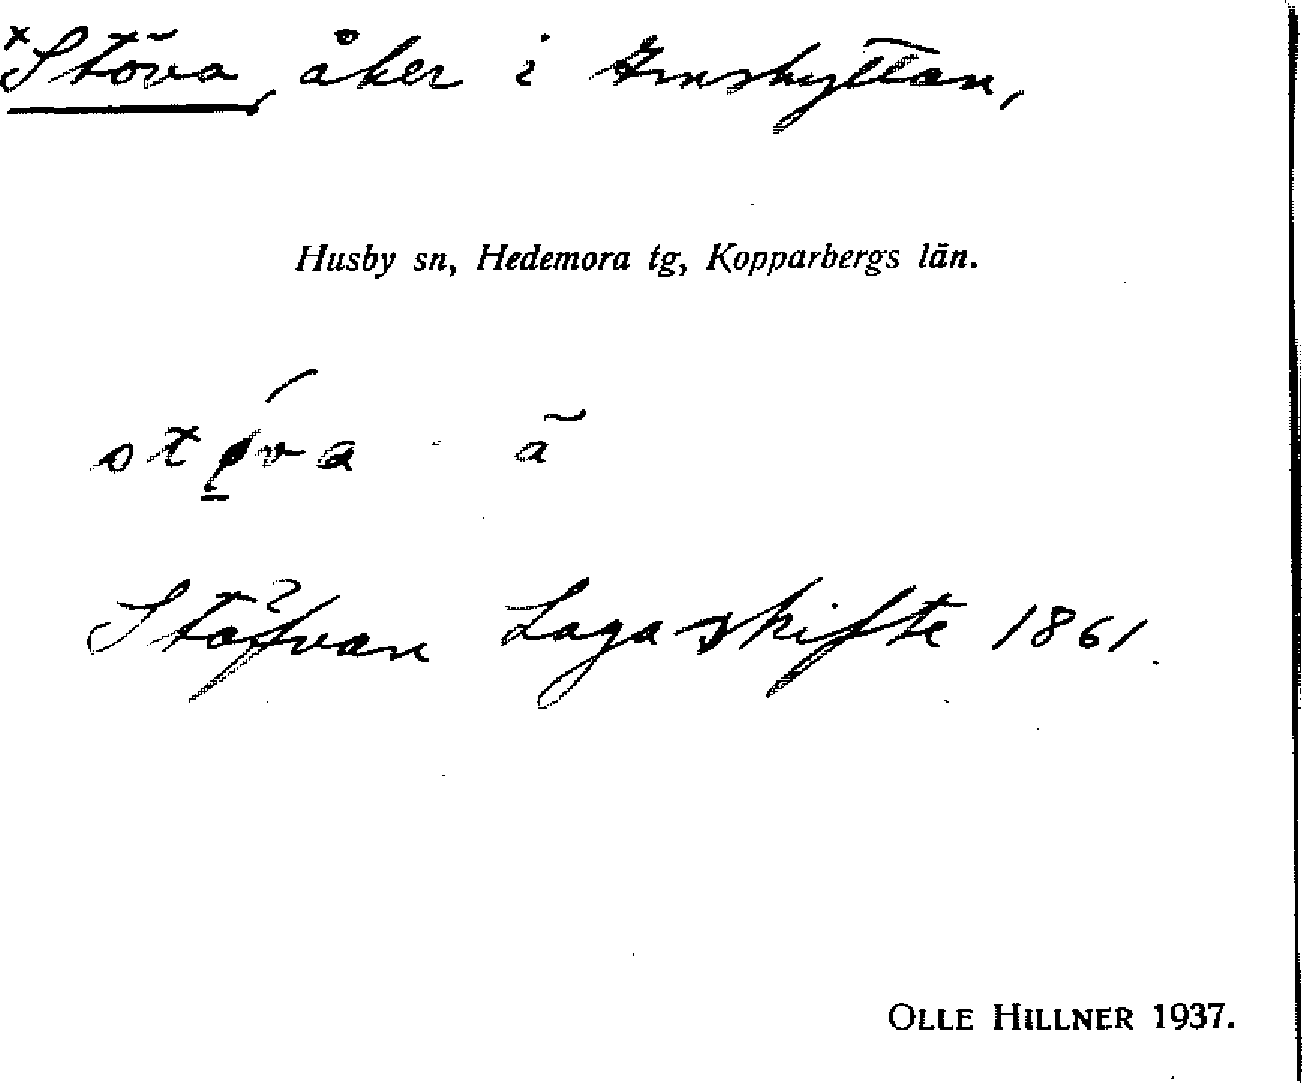 *Stöva, åker i Smshyttan,
Husby sn, Hedemora tg, Kopparbergs län.
stǿ̱va - ã
Stäfvan Laga skifte 1861.
OLLE HILLNER 1937.